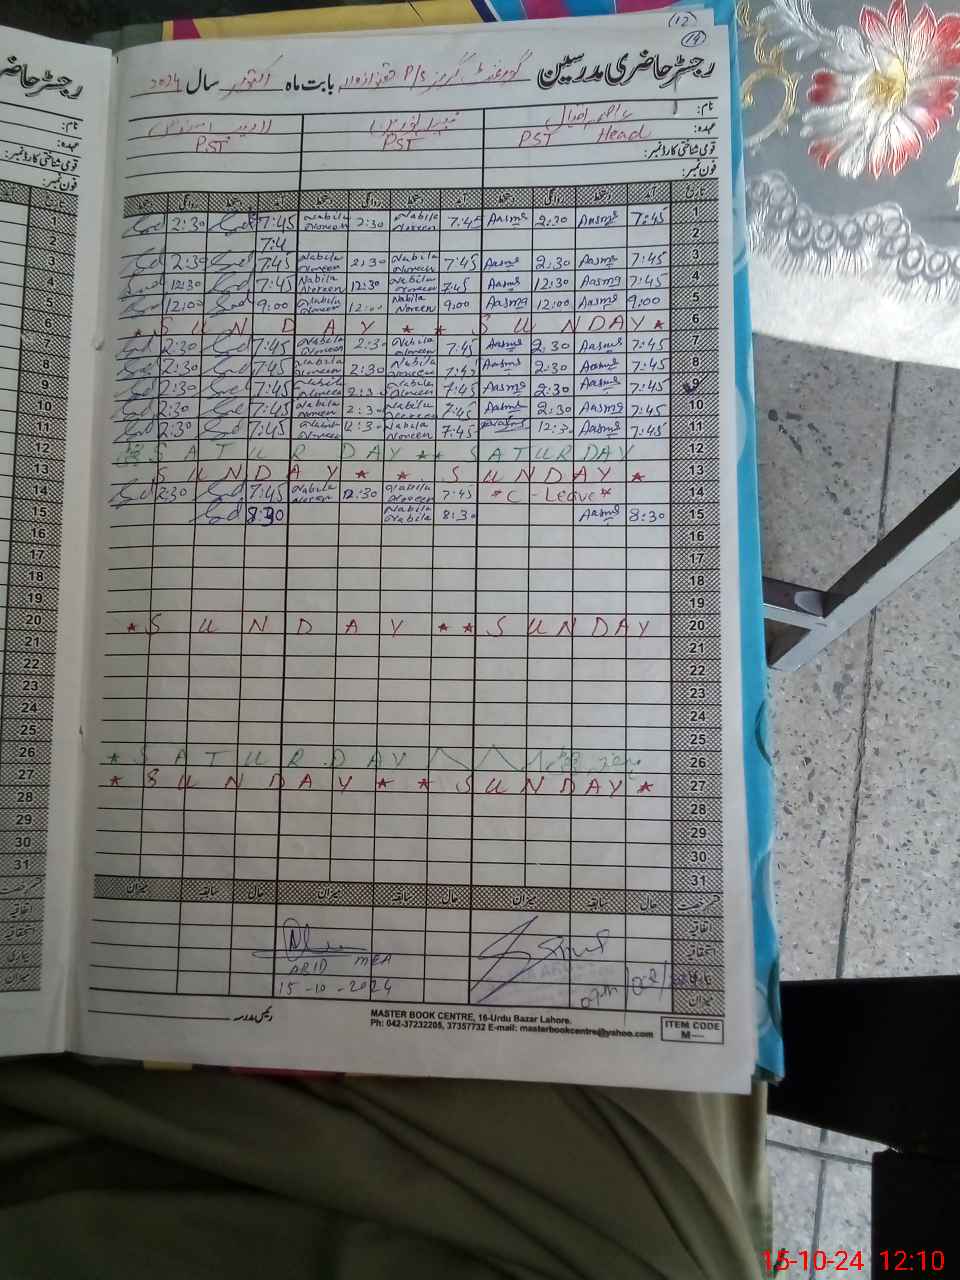 (12)
(14)
رجسٹر حاضری مدرسین گورنمنٹ گرلز P/S بابت ماہ اکتوبر سال 2024
نام:
عہدہ: PST Head PST PST
قومی شناختی کارڈ نمبر:
فون نمبر:
تاریخ آمد دستخط روانگی دستخط آمد دستخط روانگی دستخط آمد دستخط روانگی دستخط
2:30 7:45 Nabila Noreen 2:30 Nabila Noreen 7:45 Aasma 2:30 Aasma 7:45 1
7:4 2
2:30 7:45 Nabila Noreen 2:30 Nabila Noreen 7:45 Aasma 2:30 Aasma 7:45 3
12:30 7:45 Nabila Noreen 12:30 Nabila Noreen 7:45 Aasma 12:30 Aasma 7:45 4
12:00 9:00 Nabila Noreen 12:00 Nabila Noreen 9:00 Aasma 12:00 Aasma 9:00 5
* S U N D A Y * * S U N D A Y * 6
2:30 7:45 Nabila Noreen 2:30 Nabila Noreen 7:45 Aasma 2:30 Aasma 7:45 7
2:30 7:45 Nabila Noreen 2:30 Nabila Noreen 7:45 Aasma 2:30 Aasma 7:45 8
2:30 7:45 Nabila Noreen 2:30 Nabila Noreen 7:45 Aasma 2:30 Aasma 7:45 9
2:30 7:45 Nabila Noreen 2:30 Nabila Noreen 7:45 Aasma 2:30 Aasma 7:45 10
2:30 7:45 Nabila Noreen 12:30 Nabila Noreen 7:45 12:30 Aasma 7:45 11
S A T U R D A Y * * S A T U R D A Y 12
S U N D A Y * * S U N D A Y * 13
2:30 7:45 Nabila Noreen 12:30 Nabila Noreen 7:45 * C - Leave * 14
8:30 Nabila Nabila 8:30 Aasma 8:30 15
16
17
18
19
* S U N D A Y * * S U N D A Y 20
21
22
23
24
25
* S A T U R D A Y 26
* S U N D A Y * * S U N D A Y * 27
28
29
30
31
میزان سابقہ حال میزان سابقہ حال میزان سابقہ حال
اتفاقیہ
استحقاقیہ
بیماری
میزان
ABID MEA
15-10-2024
رئیس مدرسہ
MASTER BOOK CENTRE, 16-Urdu Bazar Lahore.
Ph: 042-37232205, 37357732 E-mail: masterbookcentre@yahoo.com
ITEM CODE
M----
رجسٹر حاضر
نام:
عہدہ:
قومی شناختی کارڈ نمبر:
فون نمبر:
1
2
3
4
5
6
7
8
9
10
11
12
13
14
15
16
17
18
19
20
21
22
23
24
25
26
27
28
29
30
31
اتفاقیہ
استحقاقیہ
بیماری
میزان
15-10-24 12:10